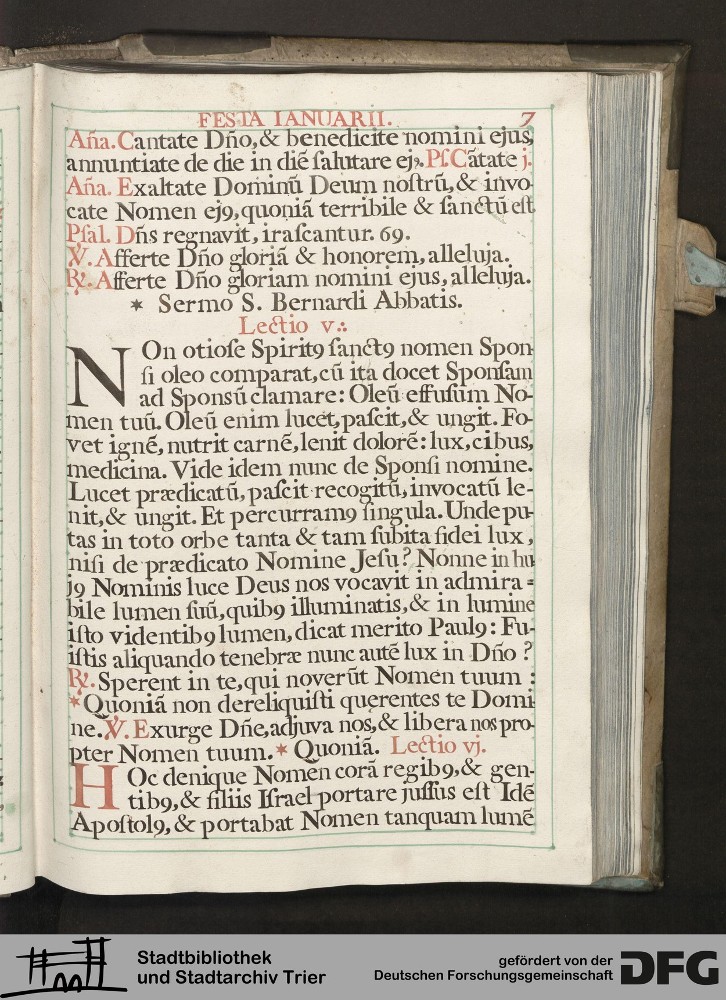 FESTA IANUARII. 7
Añа. Cantate Dño, & benedicite nomini ejus,
annuntiate de die in diē ſalutare ejꝰ. Pſ. Cātate j.
Aña. Exaltate Dominū Deum noſtrū, & invo-
cate Nomen ejꝰ, quoniā terribile & ſanctū eſt
Pſal. Dñs regnavit, iraſcantur. 69.
℣. Afferte Dño gloriā & honorem, alleluja.
℟. Afferte Dño gloriam nomini ejus, alleluja.
* Sermo S. Bernardi Abbatis.
Lectio v.:
NOn otioſe Spiritꝰ ſanctꝰ nomen Spon-
ſi oleo comparat, cū ita docet Sponſam
ad Sponsū clamare: Oleū effuſum No-
men tuū. Oleū enim lucet, paſcit, & ungit. Fo-
vet ignē, nutrit carnē, lenit dolorē: lux, cibus,
medicina. Vide idem nunc de Sponſi nomine.
Lucet prædicatū, paſcit recogitū, invocatū le-
nit, & ungit. Et percurramꝰ ſingula. Unde pu-
tas in toto orbe tanta & tam ſubita fidei lux,
niſi de prædicato Nomine Jeſu? Nonne in hu
jꝰ Nominis luce Deus nos vocavit in admira=
bile lumen ſuū, quibꝰ illuminatis, & in lumine
iſto videntibꝰ lumen, dicat merito Paulꝰ: Fu-
iſtis aliquando tenebræ nunc autē lux in Dño?
℟. Sperent in te, qui noverūt Nomen tuum:
*Quoniā non dereliquiſti querentes te Domi
ne. ℣. Exurge Dñe, adjuva nos, & libera nos pro-
pter Nomen tuum. * Quoniā. Lectio vj.
HOc denique Nomen corā regibꝰ, & gen-
tibꝰ, & filiis Iſrael portare juſſus eſt Idē
Apoſtolꝰ, & portabat Nomen tanquam lumē
Stadtbibliothek
und Stadtarchiv Trier
gefördert von der
Deutschen Forschungsgemeinschaft
DFG